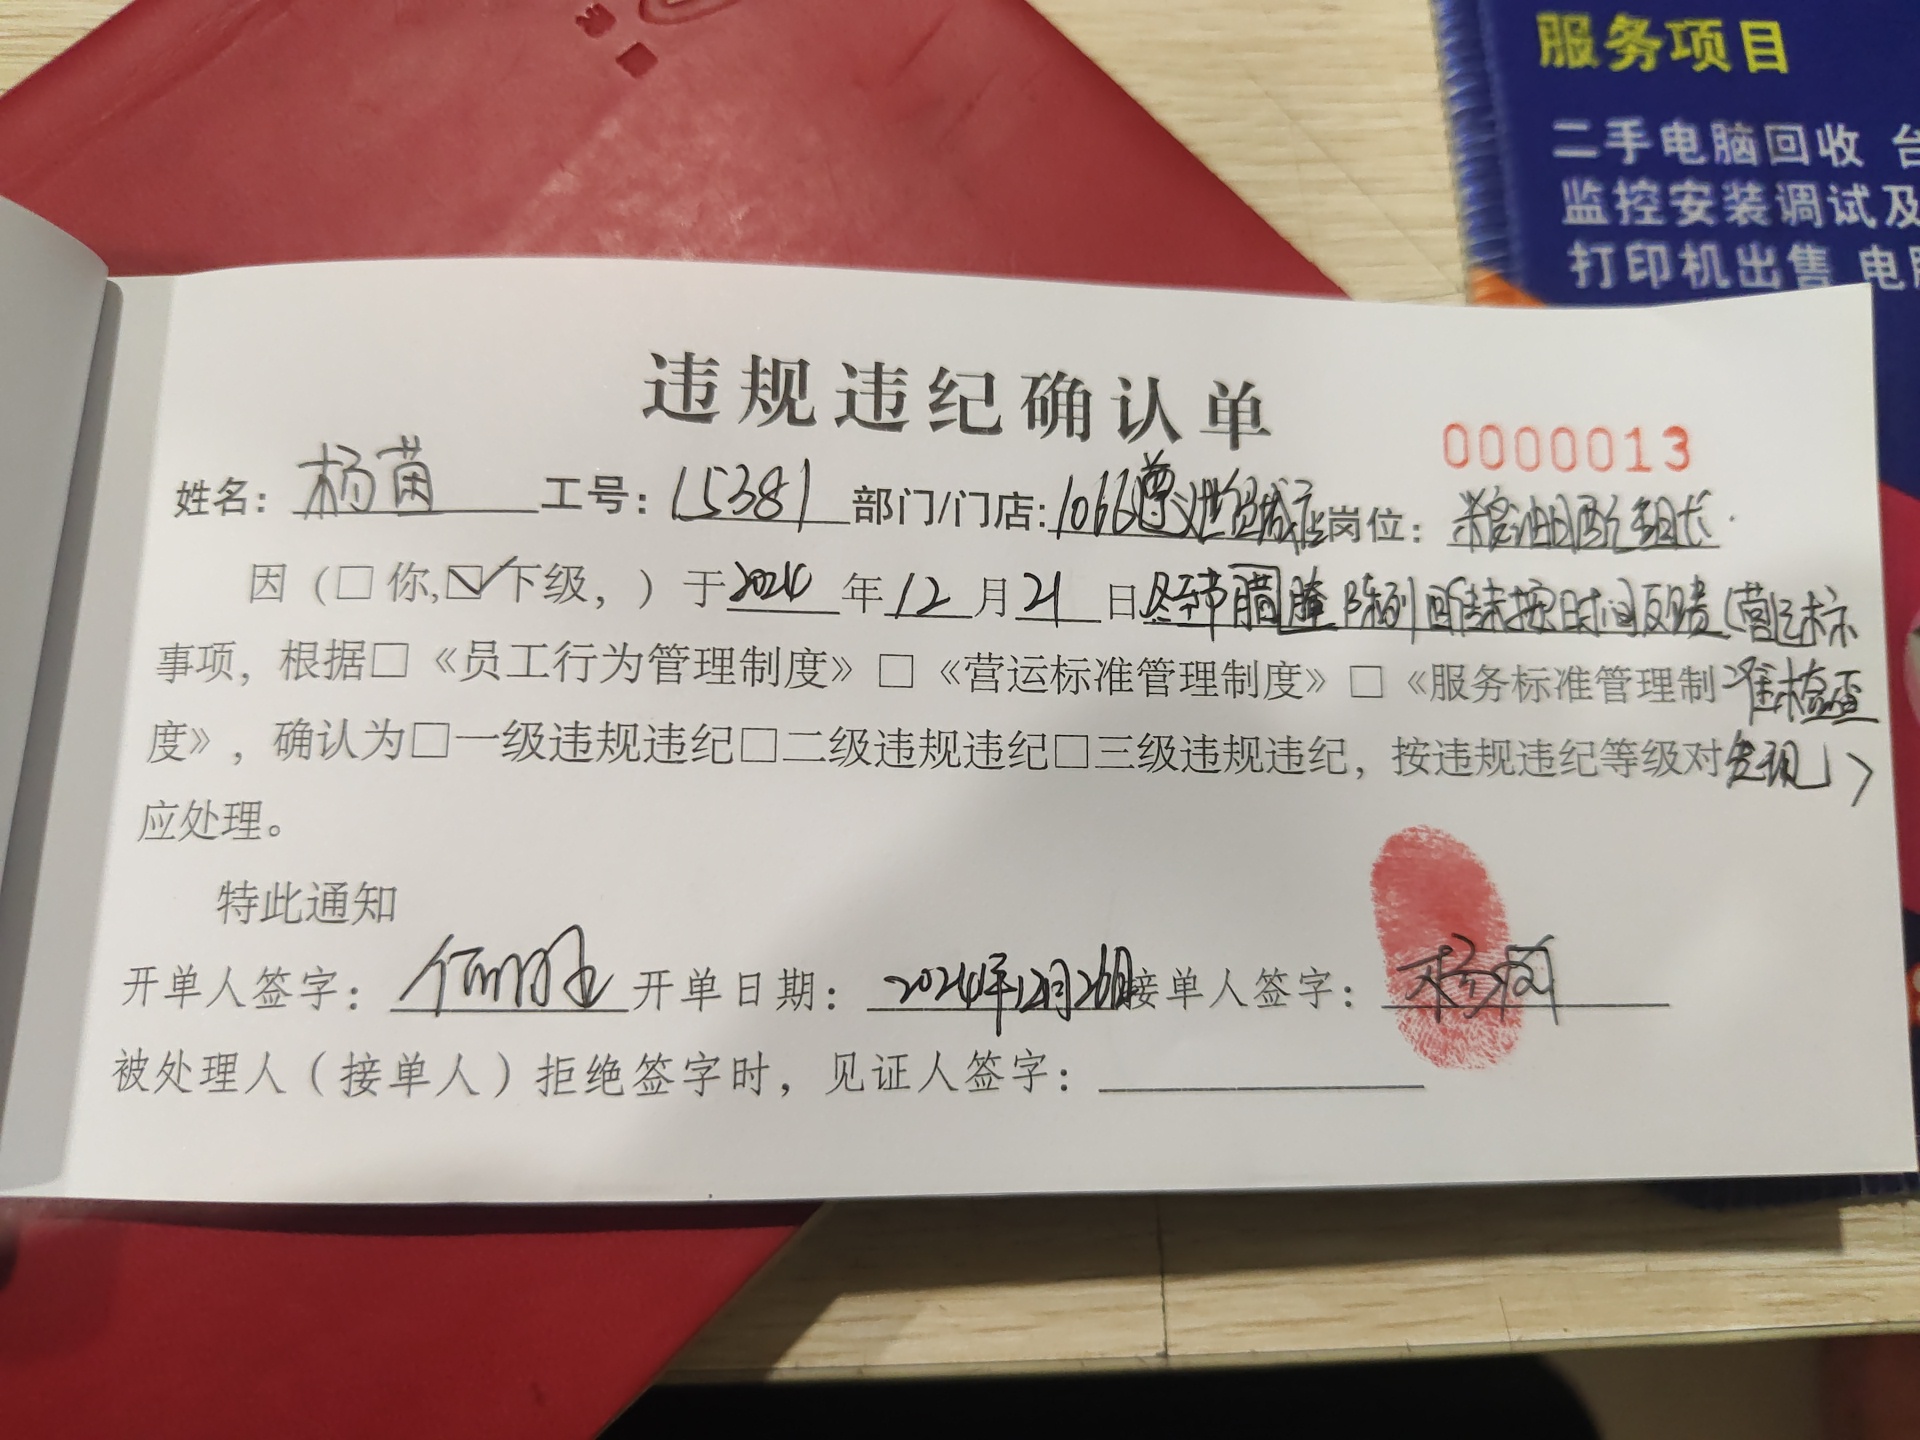 服务项目
二手电脑回收 台
监控安装调试及
打印机出售 电脑
违规违纪确认单
0000013
姓名：杨茵 工号：15381 部门/门店：1066遵义 店 岗位：粮油日配组长
因（□你，☑下级，）于2024年12月21日冬至节腊腌陈列 未按时间反馈（营运标
事项，根据□《员工行为管理制度》□《营运标准管理制度》□《服务标准管理制 准检查
度》，确认为□一级违规违纪□二级违规违纪□三级违规违纪，按违规违纪等级对 发现）
应处理。
特此通知
开单人签字： 开单日期：2024年12月26日 接单人签字：杨茵
被处理人（接单人）拒绝签字时，见证人签字：